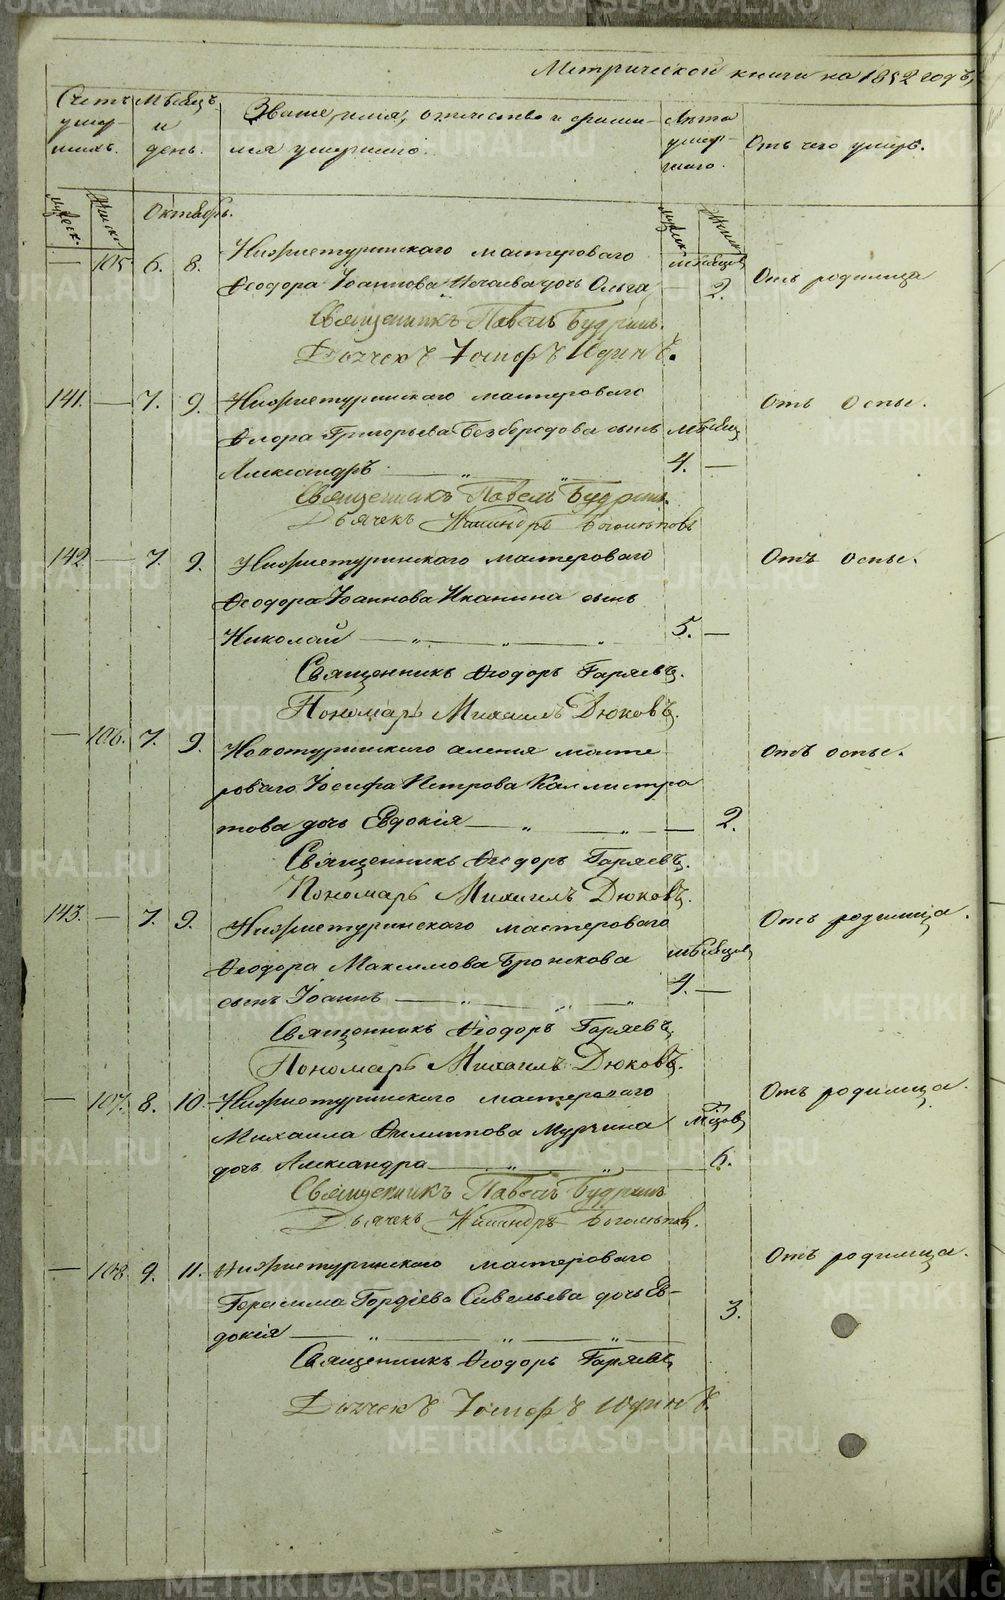 Метрической книги на 1852 годъ,
Счетъ умер-шихъ.
Мѣсяцъ и день.
Званіе, имя, отчество и фами-
лія умершаго.
Лѣта умер-шаго.
Отъ чего умеръ.
мужеск. женск. Октябрь. мужеск. женск.
— 105 6. 8. Нижнетуринскаго мастероваго мѣсяцев
Ѳеодора Іоаннова Нечаева дочь Ольга, — 2. Отъ родимца
Священникъ Павелъ Будринъ.
Дьячекъ Іосифъ Юдинъ.
141. — 7. 9. Нижнетуринскаго мастероваго Отъ Оспы.
Флора Григорьева Безбородова сынъ мѣсяц
Александръ — „ — „ 4. —
Священникъ Павелъ Будринъ.
Дьячекъ
142. — 7. 9. Нижнетуринскаго мастероваго Отъ оспы.
Ѳеодора Іоаннова Иканина сынъ
Николай — „ — „ — „ 5. —
Священникъ Ѳеодоръ Гаряевъ.
Пономарь Михаилъ Дюковъ.
— 106. 7. 9. масте Отъ оспы.
роваго Іосифа Петрова Каллистра
това дочь Евдокія — „ — „ — 2.
Священникъ Ѳеодоръ Гаряевъ.
Пономарь Михаилъ Дюковъ.
143. — 7. 9. Нижнетуринскаго мастероваго Отъ родимца.
Ѳеодора Максимова сынъ Іоаннъ — „ — „ — „ 4. —
Священникъ Ѳеодоръ Гаряевъ
Пономарь Михаилъ Дюковъ.
— 107. 8. 10. Нижнетуринскаго мастероваго Отъ родимца.
Михаила Филиппова Мурзина мѣсяцов
дочь Александра — „ — „ — 6.
Священникъ Павелъ Будринъ
Дьячекъ
— 108. 9. 11. Нижнетуринскаго мастероваго Отъ родимца.
Герасима Гордѣева Савельева дочь Ев-
докія — „ — „ — „ — 3.
Священникъ Ѳеодоръ Гаряевъ
Дьячекъ Іосифъ Юдинъ.
METRIKI.GASO-URAL.RU